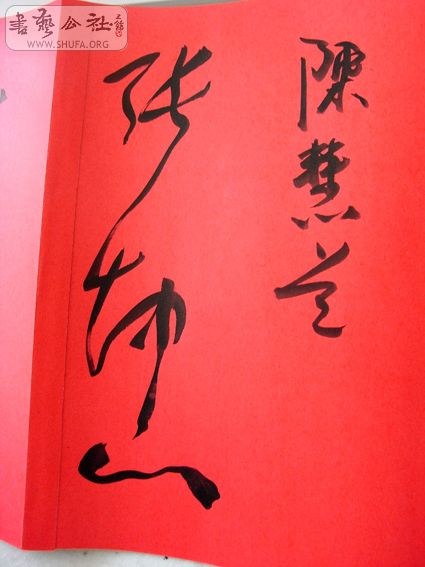 書藝公社
WWW.SHUFA.ORG
陳慧
张坤山